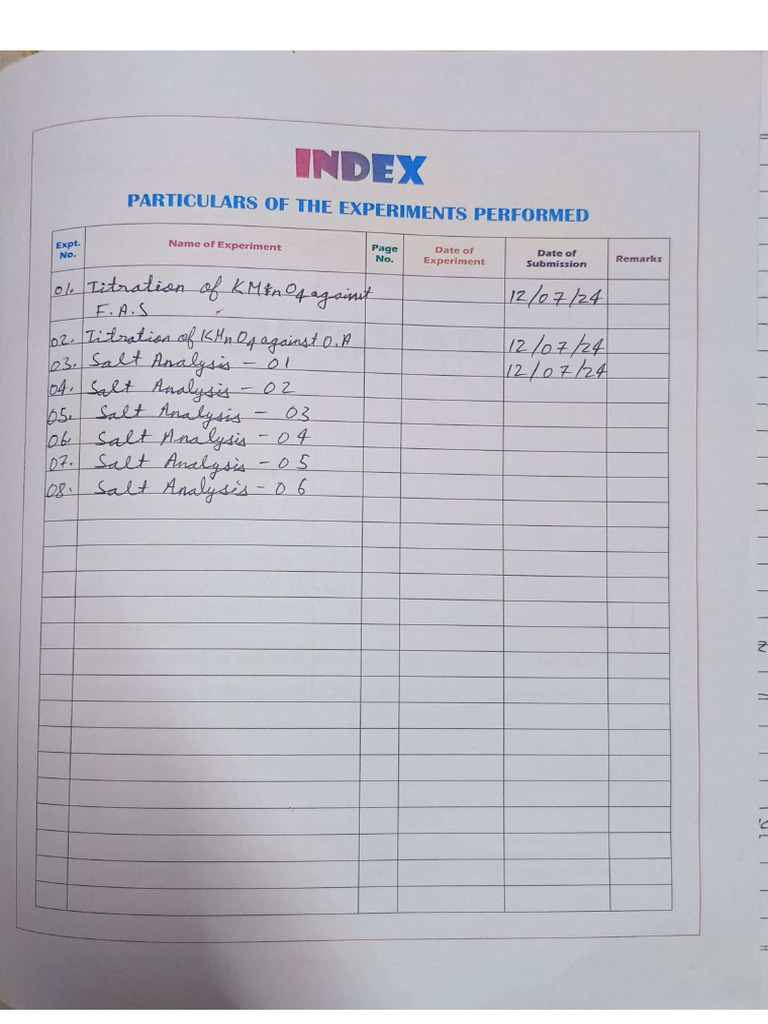 INDEX
PARTICULARS OF THE EXPERIMENTS PERFORMED
Expt. No. Name of Experiment Page No. Date of Experiment Date of Submission Remarks
01. Titration of KMnO4 against 12/07/24
F.A.S
02. Titration of KMnO4 against O.A 12/07/24
03. Salt Analysis - 01 12/07/24
04. Salt Analysis - 02
05. Salt Analysis - 03
06. Salt Analysis - 04
07. Salt Analysis - 05
08. Salt Analysis - 06